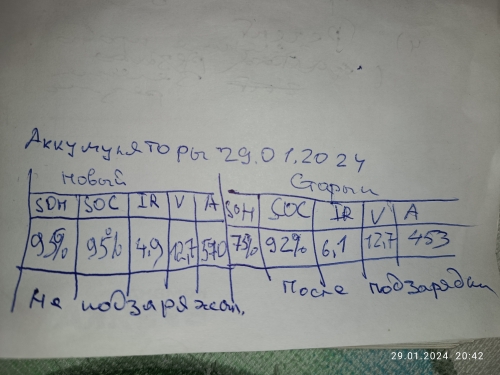 Аккумуляторы 29.01.2024
Новый Старый
SOH SOC IR V A SOH SOC IR V A
95% 95% 4,9 12,7 540 75% 92% 6,1 12,7 453
Не подзаряжал. После подзарядки
29.01.2024 20:42